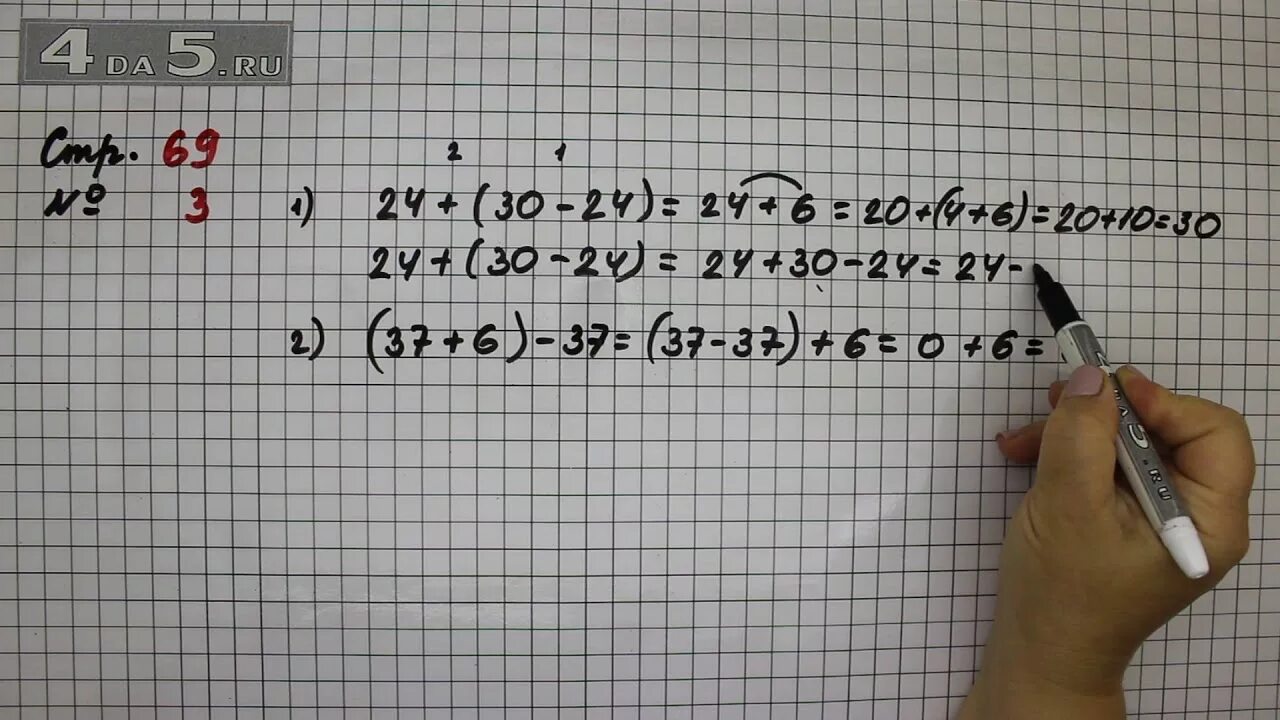 4DA5.RU
Стр. 69
№ 3
2 1
1) 24 + (30 - 24) = 24 + 6 = 20 + (4 + 6) = 20 + 10 = 30
24 + (30 - 24) = 24 + 30 - 24 = 24 -
2) (37 + 6) - 37 = (37 - 37) + 6 = 0 + 6 =
5.RU